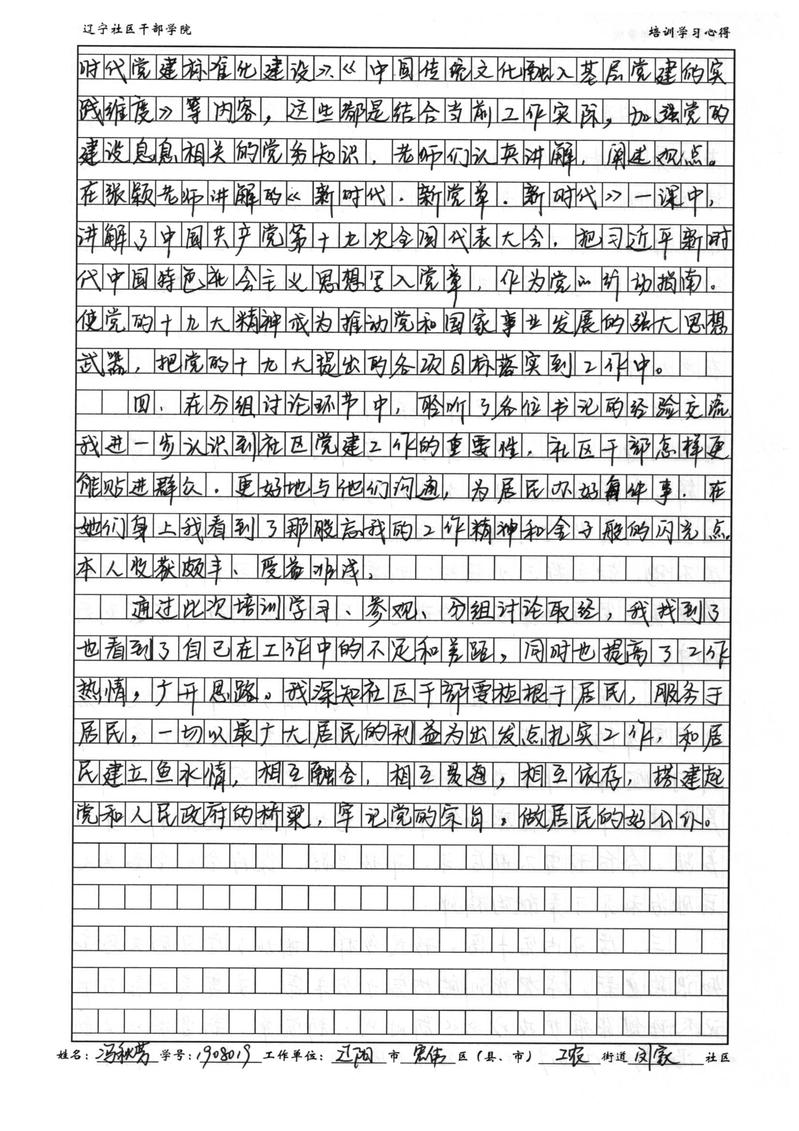 辽宁社区干部学院 培训学习心得
时代党建标准化建设》.《中国传统文化融入基层党建的实
践维度》等内容，这些都是结合当前工作实际，加强党的
建设息息相关的党务知识．老师们认真讲解，阐述观点。
在张颖老师讲解的《新时代．新党章．新时代》一课中，
讲解了中国共产党第十九次全国代表大会．把习近平新时
代中国特色社会主义思想写入党章，作为党的行动指南。
使党的十九大精神成为推动党和国家事业发展的强大思想
武器，把党的十九大提出的各项目标落实到工作中。
四、在分组讨论环节中，聆听了各位书记的经验交流
我进一步认识到社区党建工作的重要性．社区干部怎样更
能贴进群众．更好地与他们沟通，为居民办好每件事．在
她们身上我看到了那股忘我的工作精神和金子般的闪光点
本人收获颇丰、受益匪浅．
通过此次培训学习、参观、分组讨论取经，我找到了
也看到了自己在工作中的不足和差距，同时也提高了工作
热情，广开思路。我深知社区干部要植根于居民，服务于
居民，一切以最广大居民的利益为出发点扎实工作，和居
民建立鱼水情，相互融合，相互，相互依存，搭建起
党和人民政府的桥梁，牢记党的宗旨，做居民的好公仆。
姓名：冯秋芳 学号：1908019 工作单位：辽阳 市 宏伟 区（县、市） 工农 街道 刘家 社区